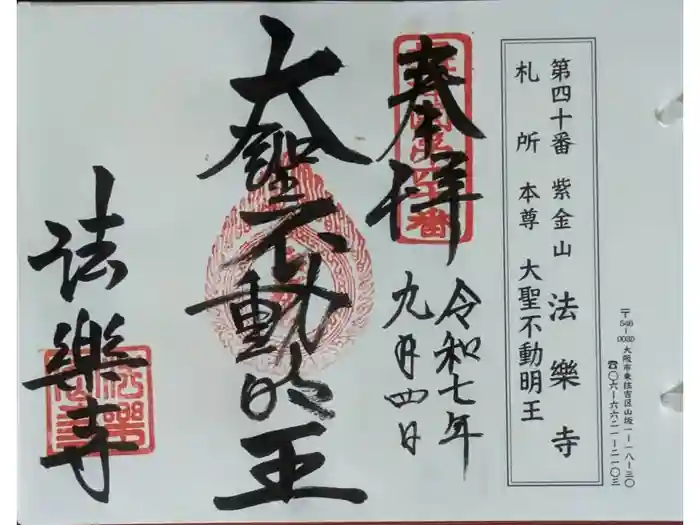 第四十番 紫金山 法樂寺
札所本尊 大聖不動明王
〒546-0035 大阪市東住吉区山坂一-一八-三〇
☎〇六-六六二一-二一〇三
奉拝
令和七年
九月四日
大聖不動明王
法樂寺